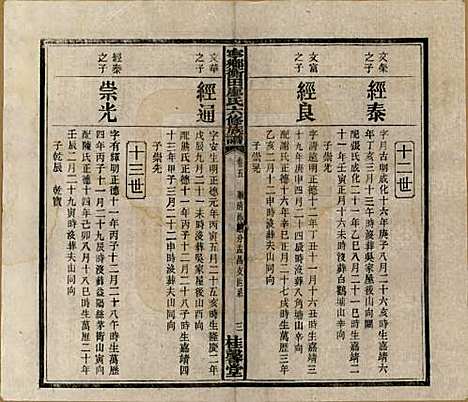 十二世
文榮之子
經泰
字月古明成化十六年庚子八月二十八戌時生嘉靖六
年丁亥三月十三亥時沒葬吳家屋後山向闕
配張氏成化二十一年乙巳八月二十一巳時生嘉靖二
十一年壬寅正月十一戌時沒葬白鶴埔山辛向
子崇光
文富之子
經良
字請遠明正德十二年丁丑十一月十六丑時生嘉靖三
十九年庚申四月二十四辰時沒葬八角埔山子向
配謝氏正德十六年辛巳正月二十七戌時生嘉靖三
乙亥二月十二申時沒葬夫山同向
子崇
文華之子
經通
字安生明正德元年丙寅五月二十五亥時生隆慶二年
戊辰九月二十一未時沒葬吳家屋後山西向
配熊氏正德十一年丙子十二月二十二巳時生嘉靖四
十三年甲子三月二十寅時沒葬夫山同向
子崇先
十三世
經泰之子
崇光
字有輝明正德十一年丙子十二月二十八午時生萬歷
四年丙子十一月二十二辰時沒葬益陽縣茅衝山寅向
配陳氏正德十四年己卯八月十八巳時生萬歷二十年
壬辰二月二十九寅時沒葬夫山同向
子乾辰 乾寶
寧鄉衡田廖氏六修族譜
卷五
三
桂馨堂